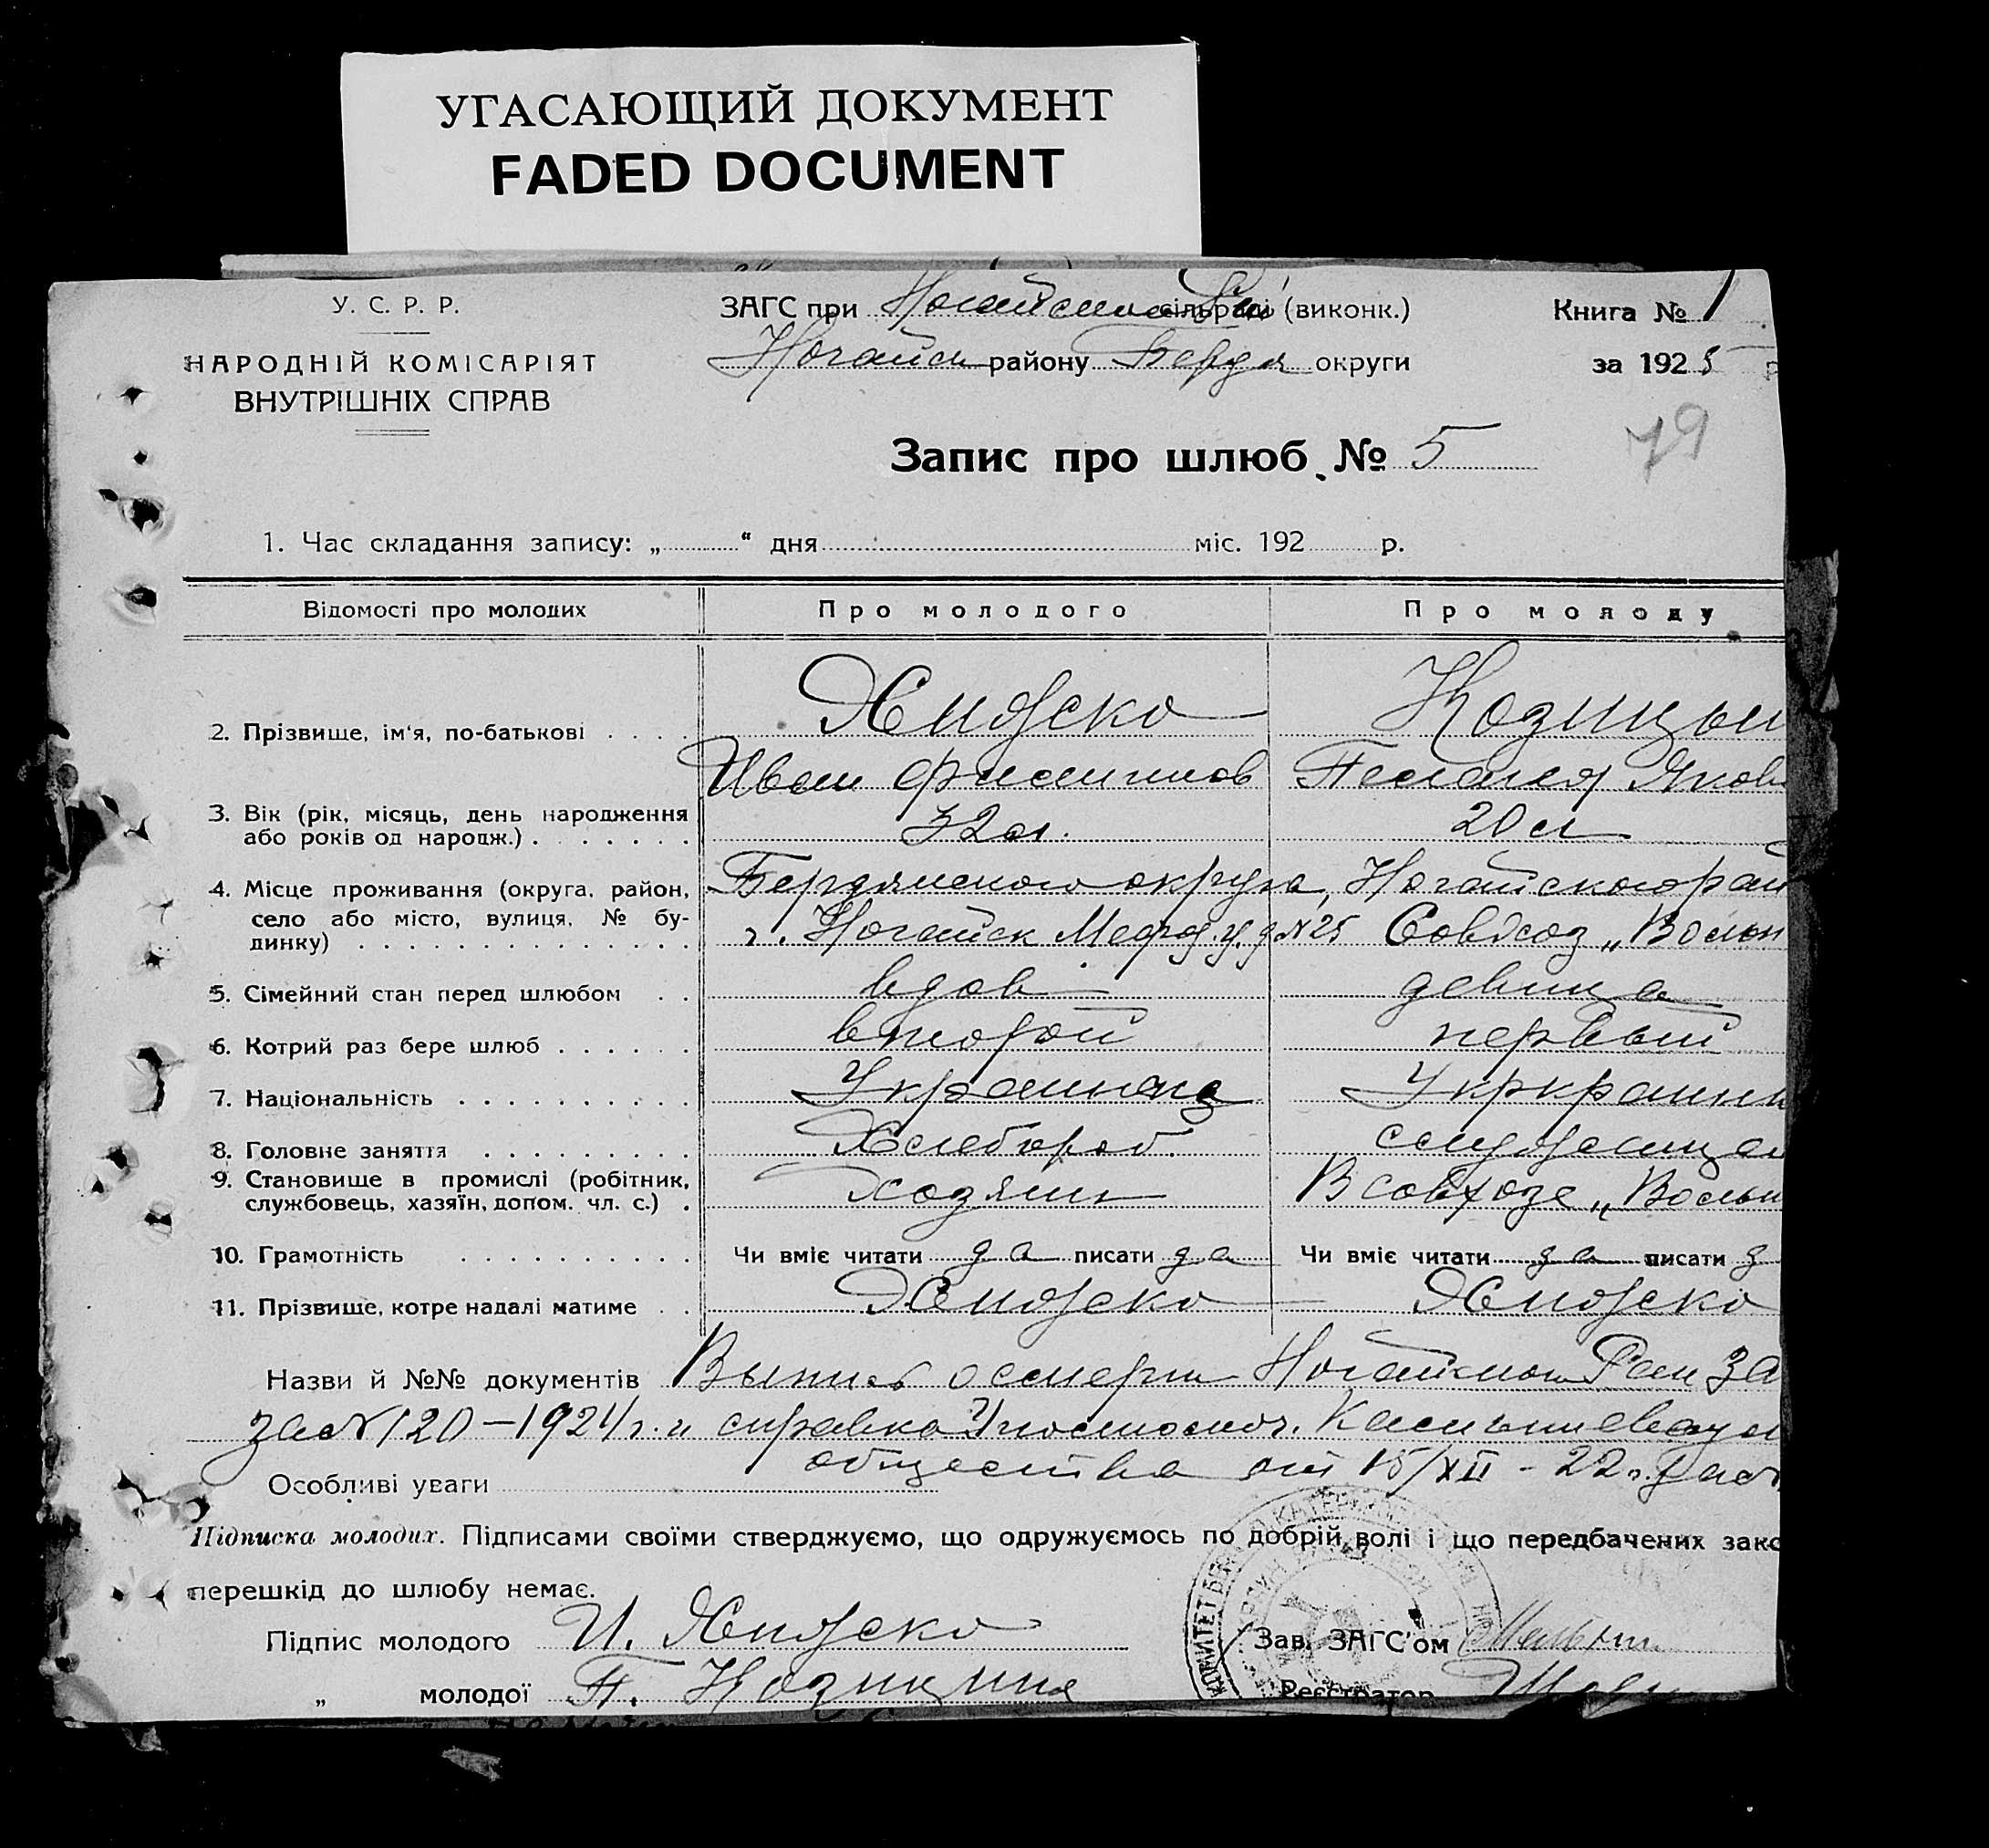 УГАСАЮЩИЙ ДОКУМЕНТ
FADED DOCUMENT
У. С. Р. Р.
НАРОДНІЙ КОМІСАРІЯТ
ВНУТРІШНІХ СПРАВ
ЗАГС при сільраді (виконк.)
Ногайск району Бердя округи
Книга № 1
за 1925 р
79
Запис про шлюб № 5
1. Час складання запису: „ “ дня міс. 192 р.
Відомості про молодих Про молодого Про молоду
2. Прізвище, ім'я, по-батькові Козицын
Иван Филиппов Пелагея Яковл
3. Вік (рік, місяць, день народження
або років од народж.) 32 л. 20 л
4. Місце проживання (округа, район, Бердянского округа, Ногайского рай
село або місто, вулиця, № бу- г. Ногайск у. д №25 Совхоз „Вольн
динку)
5. Сімейний стан перед шлюбом вдов девица
6. Котрий раз бере шлюб второй первый
7. Національність Украинец Укркраин
8. Головне заняття Хлебороб
9. Становище в промислі (робітник,
службовець, хазяїн, допом. чл. с.) Хозяин В совхозе „Вольн
10. Грамотність Чи вміє читати да писати да Чи вміє читати да писати д
11. Прізвище, котре надалі матиме
Назви й №№ документів Выпись о смерти Рай ЗА
за №120–1924 г. и справка
Особливі уваги общества от 15/XII - 22 г. за №
Підписка молодих. Підписами своїми стверджуємо, що одружуємось по добрій волі і що передбачених зако
перешкід до шлюбу немає.
Підпис молодого И.
„ молодої П. Козицина
Зав. ЗАГС'ом
Реєстратор